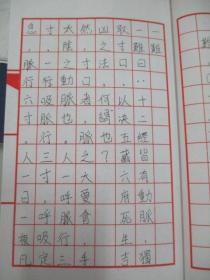 一難
一難曰：十二經皆有動脈，獨
取寸口，以決五藏六府死生，吉
凶之法，何謂也？
然，寸口者，脈之大會，手
太陰之動脈也。人一呼脈行三
寸，一吸脈行三寸，呼吸定
息，脈行六寸，人一日一夜凡